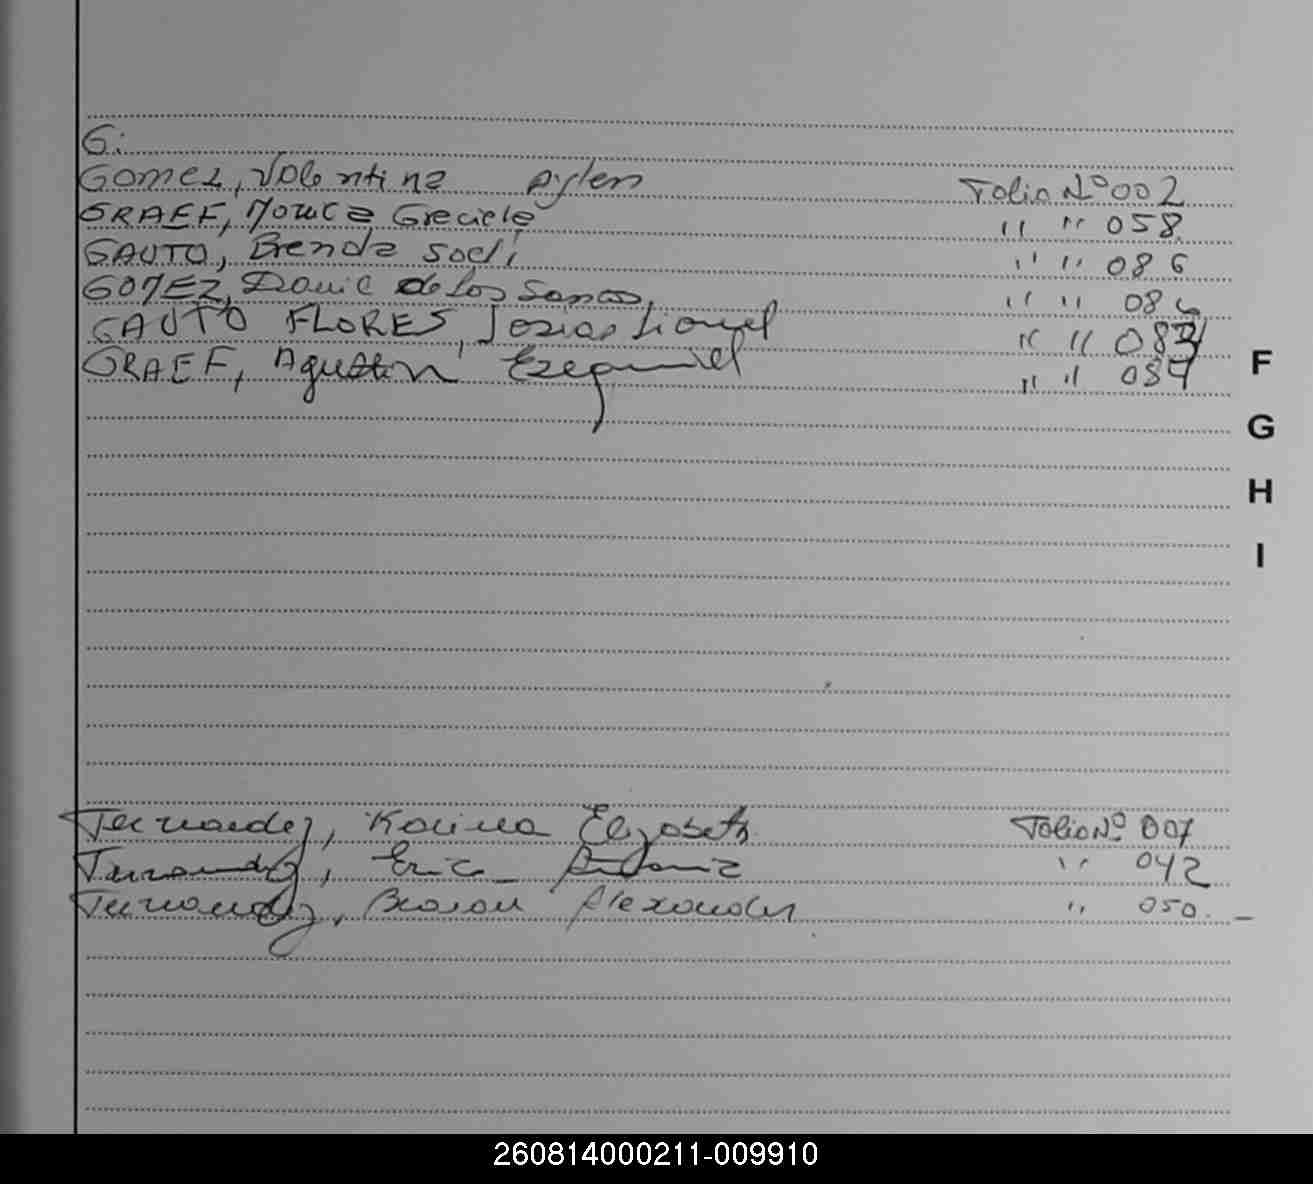 G:
Gomez, Valentina Aylen Folio Nº 002
GRAEF, Monica Graciela " " 058
GAUTO, Brenda " " 086
GOMEZ, de Los " " 08
GAUTO FLORES, Josias Lionel " " 08
GRAEF, Agustin Ezequiel " "
F
G
H
I
Fernandez, Karina Elizabeth Folio Nº 007
Fernandez, Eric Antonio " 042
Fernandez, Braian Alexander " 050. _
260814000211-009910